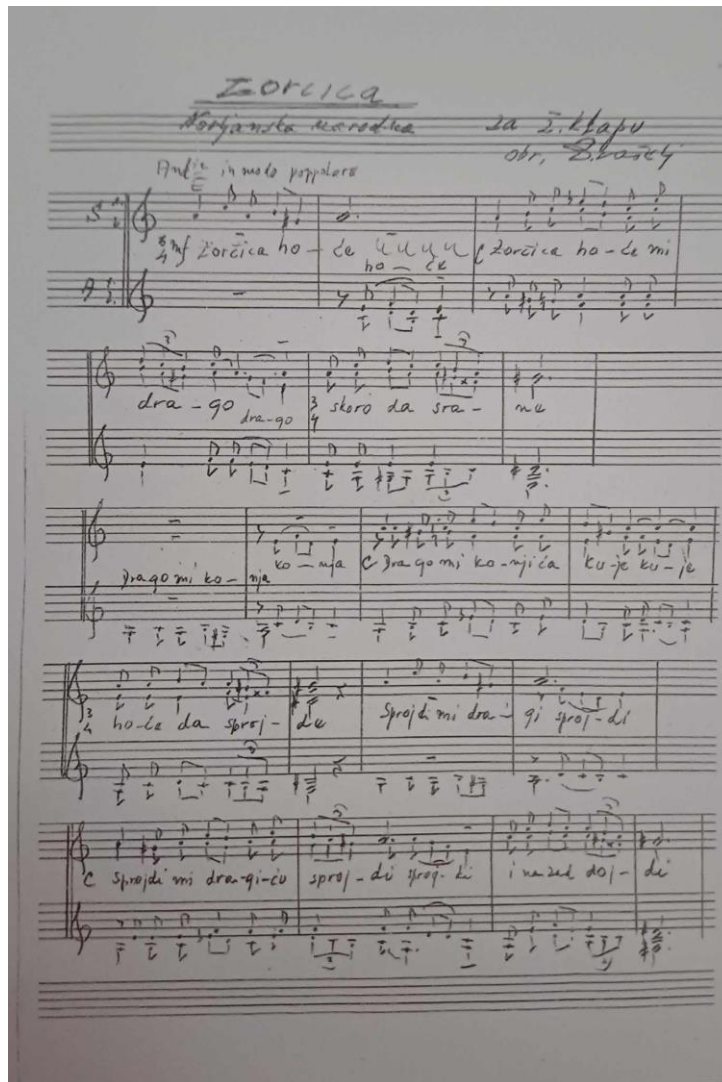 Zorčica
Norijanska narodna za ž. klapu
obr.
And in modo poppolare
S 1. 2.
3 4 mf Zorčica ho - će u u u u C Zorčica ho - će mi
ho - će
A 1. 2.
dra - go dra - go 3 4 skoro da sva - ne
Drago mi ko - nja ko - nja C Dragomi ko - njića ku - je ku - je
3 4 ho - će da sproj - de Sprojdi mi dra - gi sproj - di
C Sprojdi mi dra - gi - ću sproj - di sproj - di i nazad doj - di